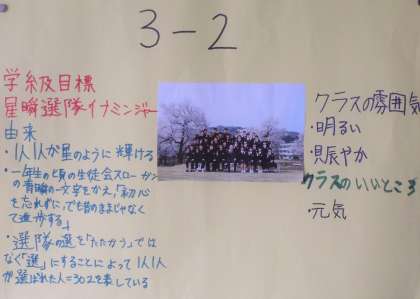 3-2
学級目標
星瞬選隊イナミンジャー
由来
・1人1人が星のように輝ける
一年生のと頃の生徒会スローガン
の青瞬の一文字をかえ、「初心
を忘れずに、でも昔のままじゃなく
て進歩する」
・選隊の選を「たたかう」では
なく「選」にすることによって1人1人
が選ばれた人=302を表している
クラスの雰囲気
・明るい
・賑やか
クラスのいいところ
・元気